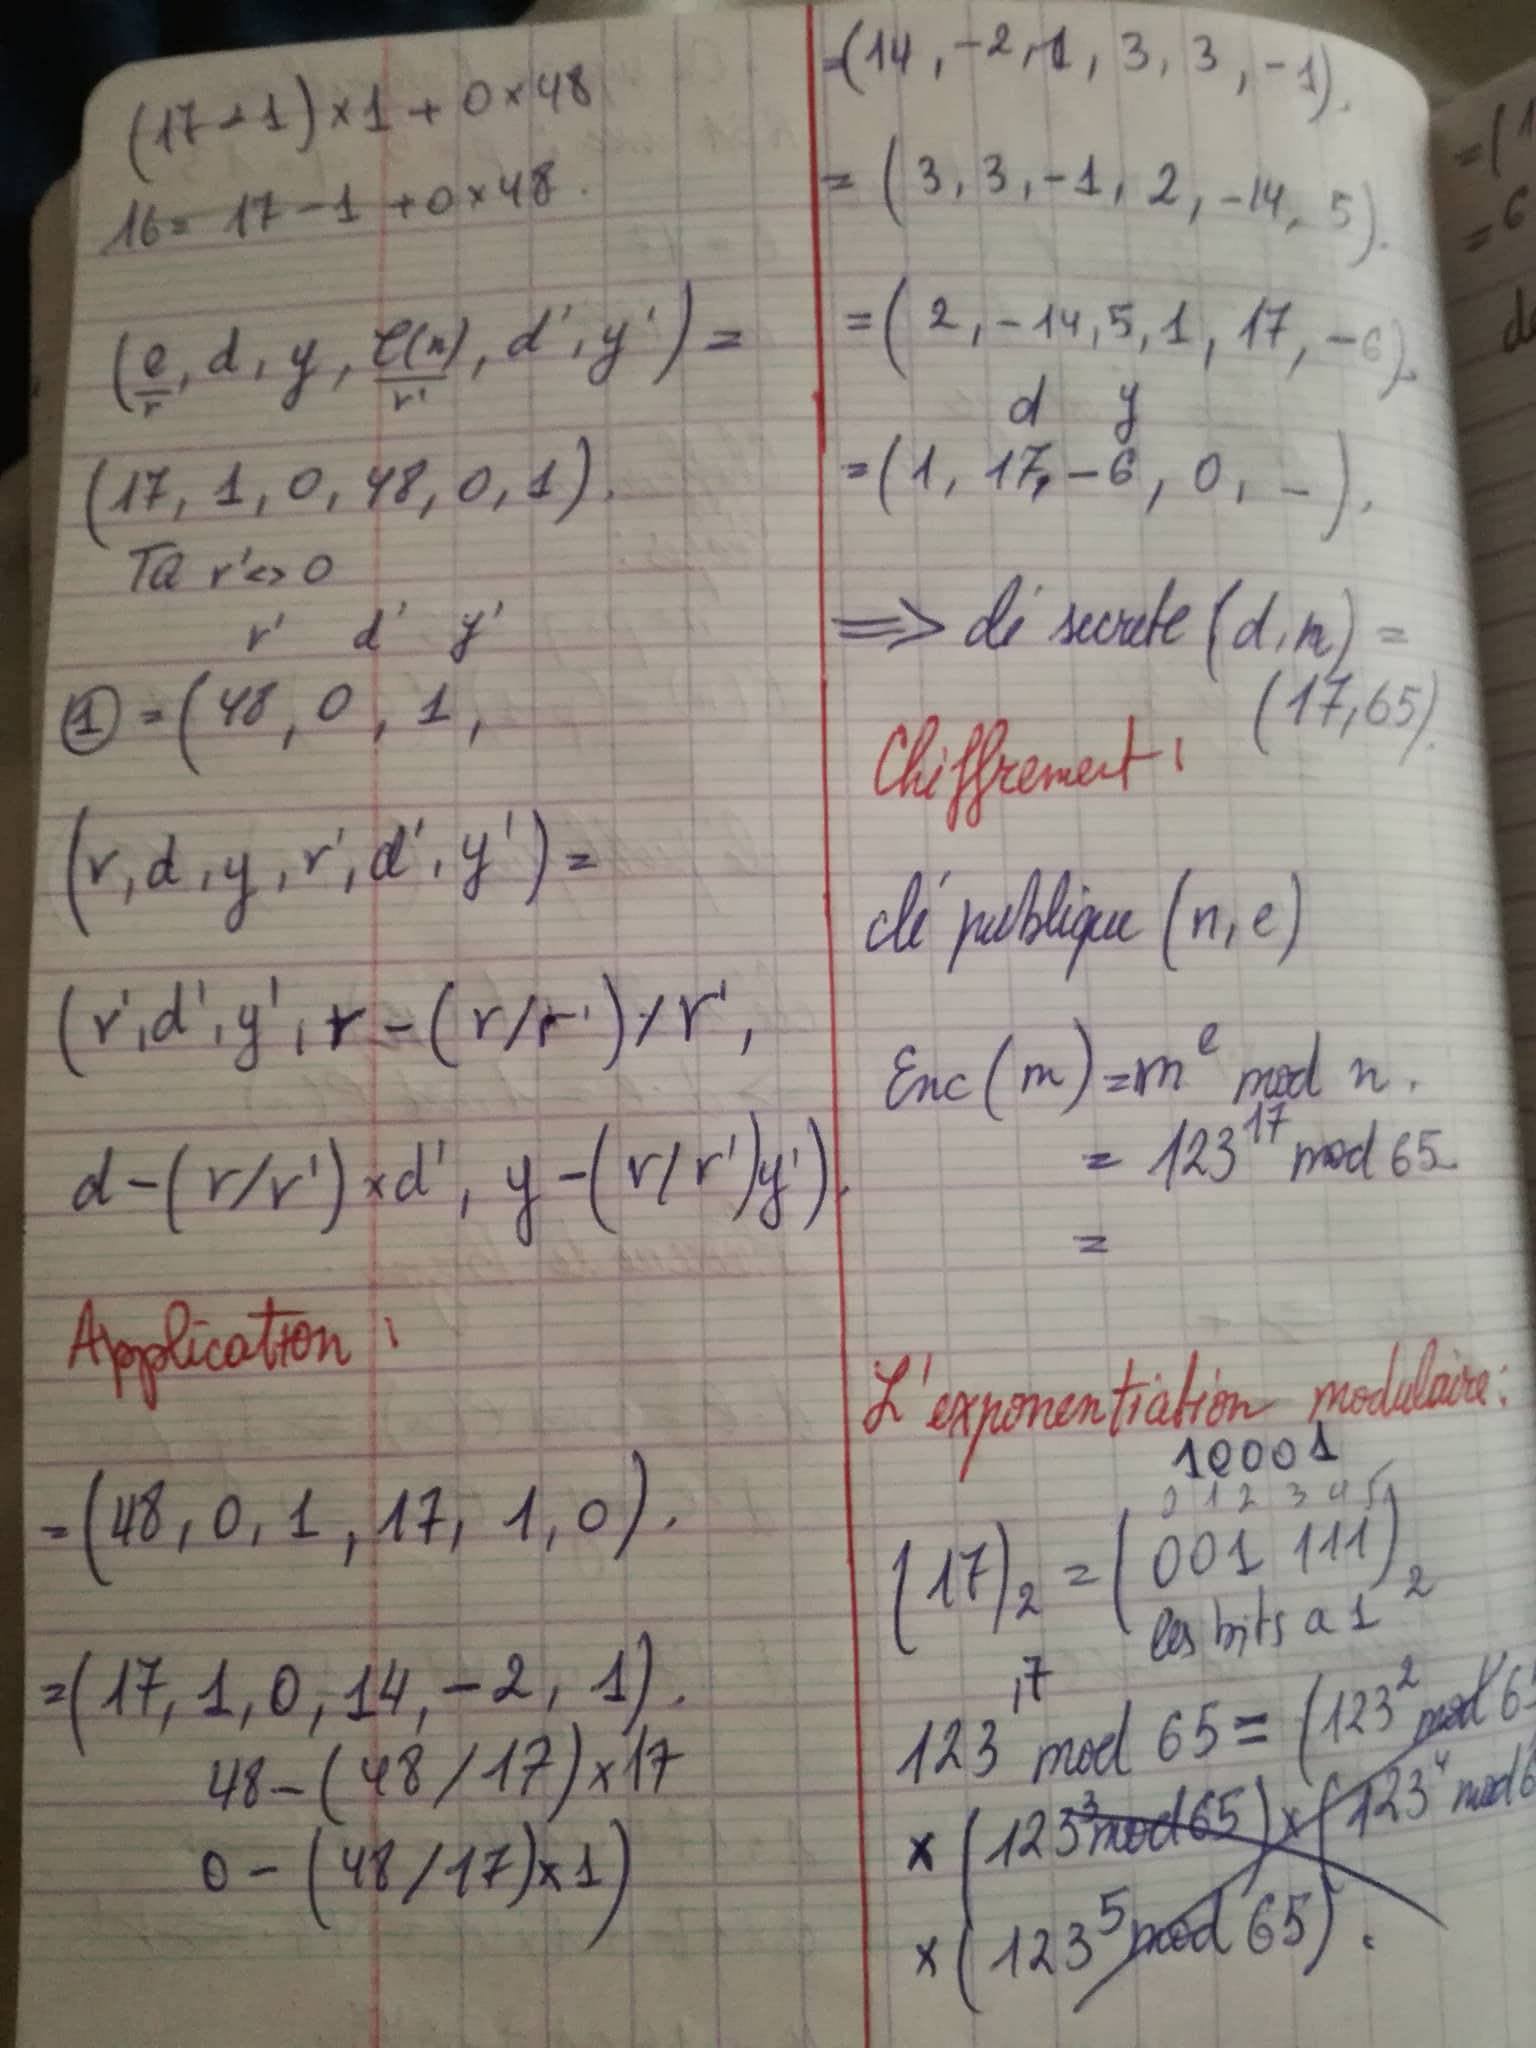 (17-1)×1 + 0×48
16= 17-1 +0×48.
(e, d, y, φ(n), d', y') =
r r'
(17, 1, 0, 48, 0, 1).
TQ r'<>0
r' d' y'
① =(48, 0, 1,
(r, d, y, r', d', y') =
(r', d', y', r-(r/r')×r',
d-(r/r')×d', y-(r/r')y').
Application :
=(48, 0, 1, 17, 1, 0).
=(17, 1, 0, 14, -2, 1).
48-(48/17)×17
0-(48/17)×1)
=(14, -2, 1, 3, 3, -1).
= (3, 3, -1, 2, -14, 5).
=(2, -14, 5, 1, 17, -6).
d y
=(1, 17, -6, 0, -).
⇒ clé secrete (d, n) =
(17, 65).
Chiffrement :
clé publique (n, e)
Enc(m) = m^e mod n.
= 123^17 mod 65
=
L'exponentiation modulaire :
10001
0 1 2 3 4 5
(17)₂ = (001 111)₂
les bits a 1
123^17 mod 65 = (123² mod 65
× (123³ mod 65) × (123⁴ mod 6
× (123⁵ mod 65).
=(1
= 6
d